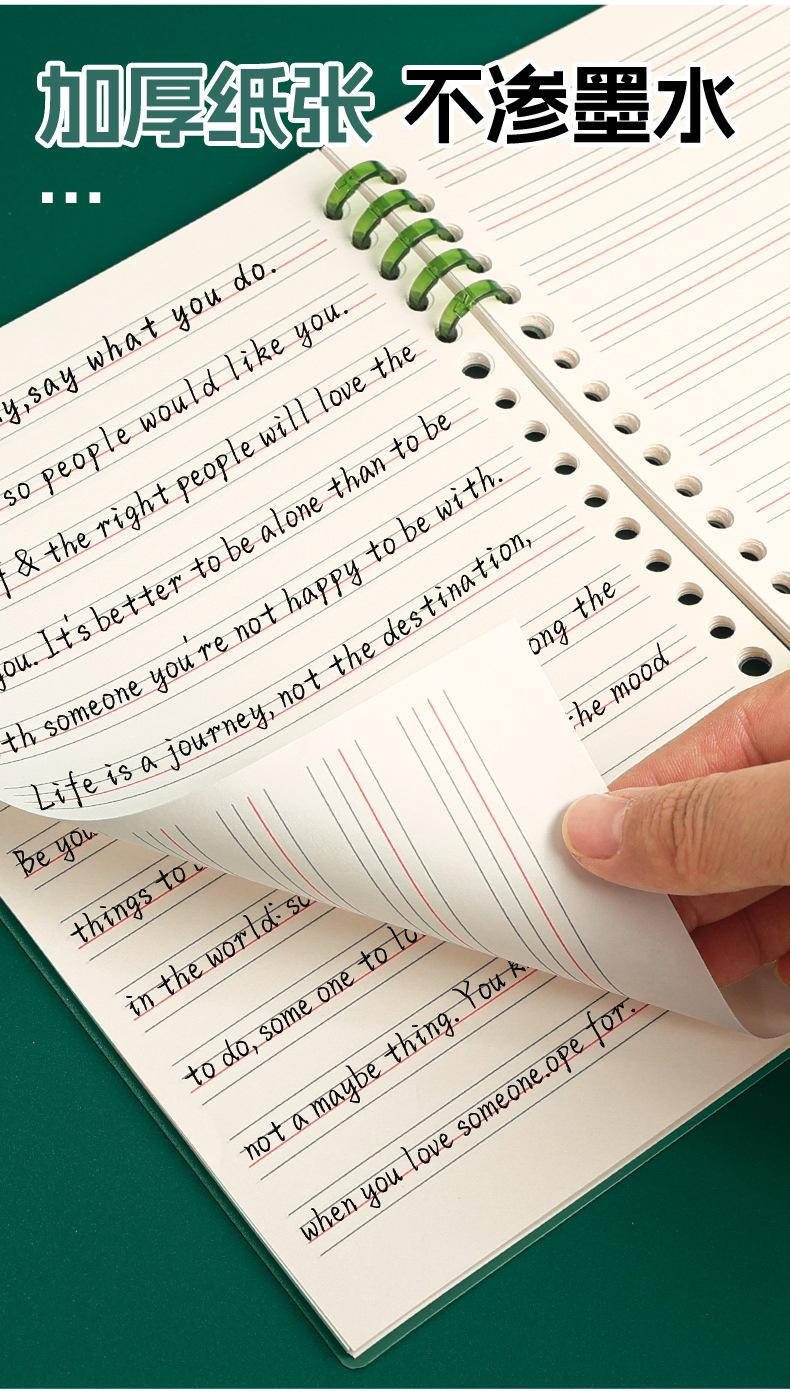 加厚纸张 不渗墨水
...
y,say what you do.
so people would like you.
f & the right people will love the
you. It's better to be alone than to be
th someone you're not happy to be with.
Life is a journey, not the destination,
ong the
the mood
Be you
things to
in the world: so
to do, some one to lo
not a maybe thing. You k
when you love someone.ope for.